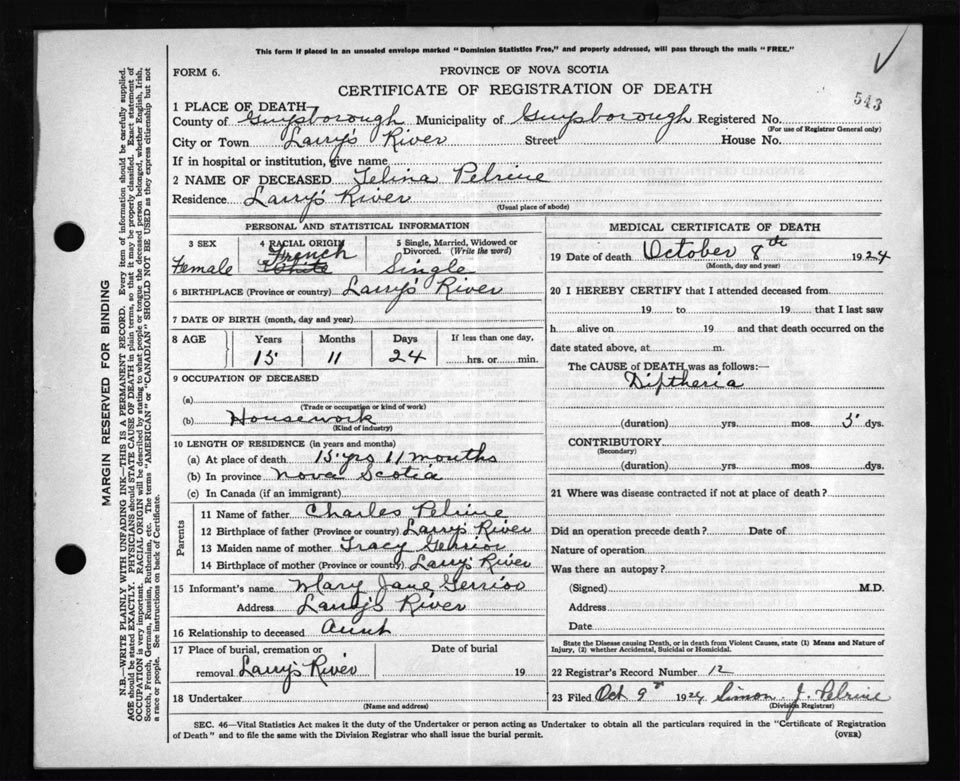 This form if placed in an unsealed envelope marked "Dominion Statistics Free," and properly addressed, will pass through the mails "FREE."
FORM 6.
PROVINCE OF NOVA SCOTIA
CERTIFICATE OF REGISTRATION OF DEATH
543
1 PLACE OF DEATH
County of Guysborough Municipality of Guysborough Registered No.
(For use of Registrar General only)
City or Town Larry's River Street House No.
If in hospital or institution, give name
2 NAME OF DECEASED Telina Pelrine
Residence Larry's River
(Usual place of abode)
PERSONAL AND STATISTICAL INFORMATION
3 SEX
Female
4 RACIAL ORIGIN
French
White
5 Single, Married, Widowed or Divorced. (Write the word)
Single
6 BIRTHPLACE (Province or country) Larry's River
7 DATE OF BIRTH (month, day and year)
8 AGE Years Months Days If less than one day,
15 11 24 hrs. or min.
9 OCCUPATION OF DECEASED
(a)
(Trade or occupation or kind of work)
(b) Housework
(Kind of industry)
10 LENGTH OF RESIDENCE (in years and months)
(a) At place of death 15 yrs 11 months
(b) In province Nova Scotia
(c) In Canada (if an immigrant)
Parents
11 Name of father Charles Pelrine
12 Birthplace of father (Province or country) Larry's River
13 Maiden name of mother Tracy Gerrior
14 Birthplace of mother (Province or country) Larry's River
15 Informant's name Mary Jane Gerrior
Address Larry's River
16 Relationship to deceased Aunt
17 Place of burial, cremation or Date of burial
removal Larry's River 19
18 Undertaker
(Name and address)
MEDICAL CERTIFICATE OF DEATH
19 Date of death October 8th 1924
(Month, day and year)
20 I HEREBY CERTIFY that I attended deceased from
19 to 19 that I last saw
h alive on 19 and that death occurred on the
date stated above, at m.
The CAUSE of DEATH was as follows:—
Diptheria
(duration) yrs. mos. 5 dys.
CONTRIBUTORY
(Secondary)
(duration) yrs. mos. dys.
21 Where was disease contracted if not at place of death?
Did an operation precede death? Date of
Nature of operation
Was there an autopsy?
(Signed) M.D.
Address
Date
State the Disease causing Death, or in death from Violent Causes, state (1) Means and Nature of
Injury, (2) whether Accidental, Suicidal or Homicidal.
22 Registrar's Record Number 12
23 Filed Oct 9th 1924 Simon J. Pelrine
(Division Registrar)
SEC. 46—Vital Statistics Act makes it the duty of the Undertaker or person acting as Undertaker to obtain all the particulars required in the "Certificate of Registration
of Death" and to file the same with the Division Registrar who shall issue the burial permit.
(OVER)
MARGIN RESERVED FOR BINDING
N.B.—WRITE PLAINLY WITH UNFADING INK—THIS IS A PERMANENT RECORD. Every item of information should be carefully supplied.
AGE should be stated EXACTLY. PHYSICIANS should STATE CAUSE OF DEATH in plain terms, so that it may be properly classified. Exact statement of
OCCUPATION is very important. RACIAL ORIGIN will be described by stating to what people or tongue the deceased person belonged, whether English, Irish,
Scotch, French, German, Russian, Ruthenian, etc. The terms "AMERICAN" or "CANADIAN" SHOULD NOT BE USED as they express citizenship but not
a race or people. See instructions on back of Certificate.